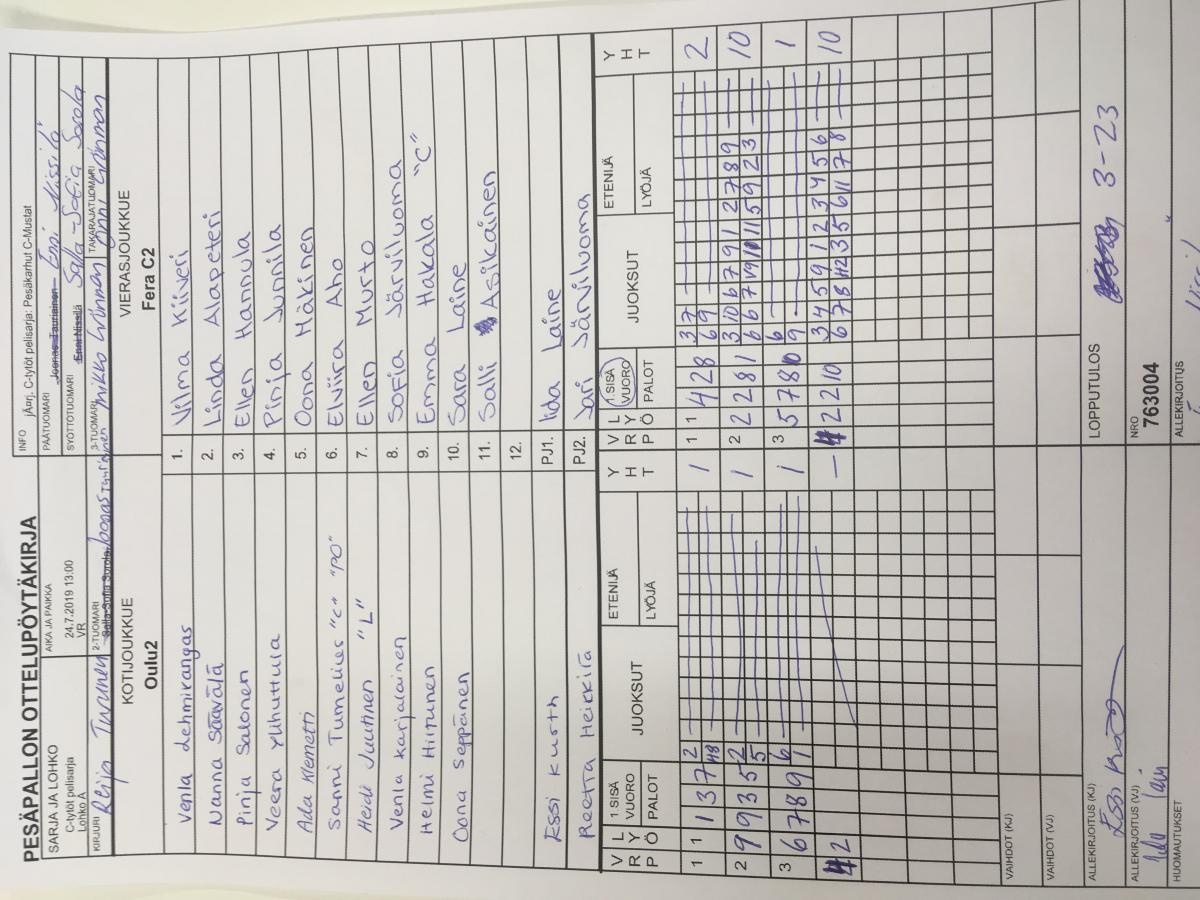 PESÄPALLON OTTELUPÖYTÄKIRJA
SARJA JA LOHKO
C-tytöt pelisarja
Lohko A
AIKA JA PAIKKA
24.7.2019 13:00
VR
INFO jÄ¤rj. C-tytöt pelisarja: Pesäkarhut C-Mustat
PÄÄTUOMARI Joonas Tauriainen Enni Nissilä
SYÖTTÖTUOMARI Enni Nissilä Salla-Sofia Sorola
KIRJURI Reija Turunen
2-TUOMARI Salla-Sofia Sorola Joonas
3-TUOMARI Mikko Grönman
TAKARAJATUOMARI Onni Grönman
KOTIJOUKKUE
Oulu2
VIERASJOUKKUE
Fera C2
Venla Lehmikangas 1. Vilma Kiiveri
Nanna Säävälä 2. Linda Alapeteri
Pinja Salonen 3. Ellen Hannula
Veera Ylihuttula 4. Pinja Junnila
Ada Klemetti 5. Oona Mäkinen
Sanni Tumelius "C" "PO" 6. Elviira Aho
Heidi Juutinen "L" 7. Ellen Murto
Venla Karjalainen 8. Sofia Järviluoma
Helmi Hiitunen 9. Emma Hakala "C"
Oona Seppänen 10. Sara Laine
11. Salli Asikainen
12.
Essi Kurth PJ1. Iida Laine
Reetta Heikkilä PJ2. Jari Järviluoma
V R P L Y Ö 1 SISÄ VUORO PALOT JUOKSUT ETENIJÄ LYÖJÄ Y H T
V R P L Y Ö 1. SISÄ VUORO PALOT JUOKSUT ETENIJÄ LYÖJÄ Y H T
1 1 1 3 7 2 1
1 1 4 2 8 3 7 2
6 9
2 9 9 3 5 2 1
5
2 2 2 8 1 3 10 6 7 9 1 2 7 8 9 10
3 6 7 8 9 6 1
1
3 5 7 8 10 6 1
9
4 2 –
4 2 2 10 3 4 5 9 1 2 3 4 5 6 10
VAIHDOT (KJ)
VAIHDOT (VJ)
ALLEKIRJOITUS (KJ)
Essi Kurth
LOPPUTULOS 3-23
ALLEKIRJOITUS (VJ)
NRO
763004
HUOMAUTUKSET
ALLEKIRJOITUS